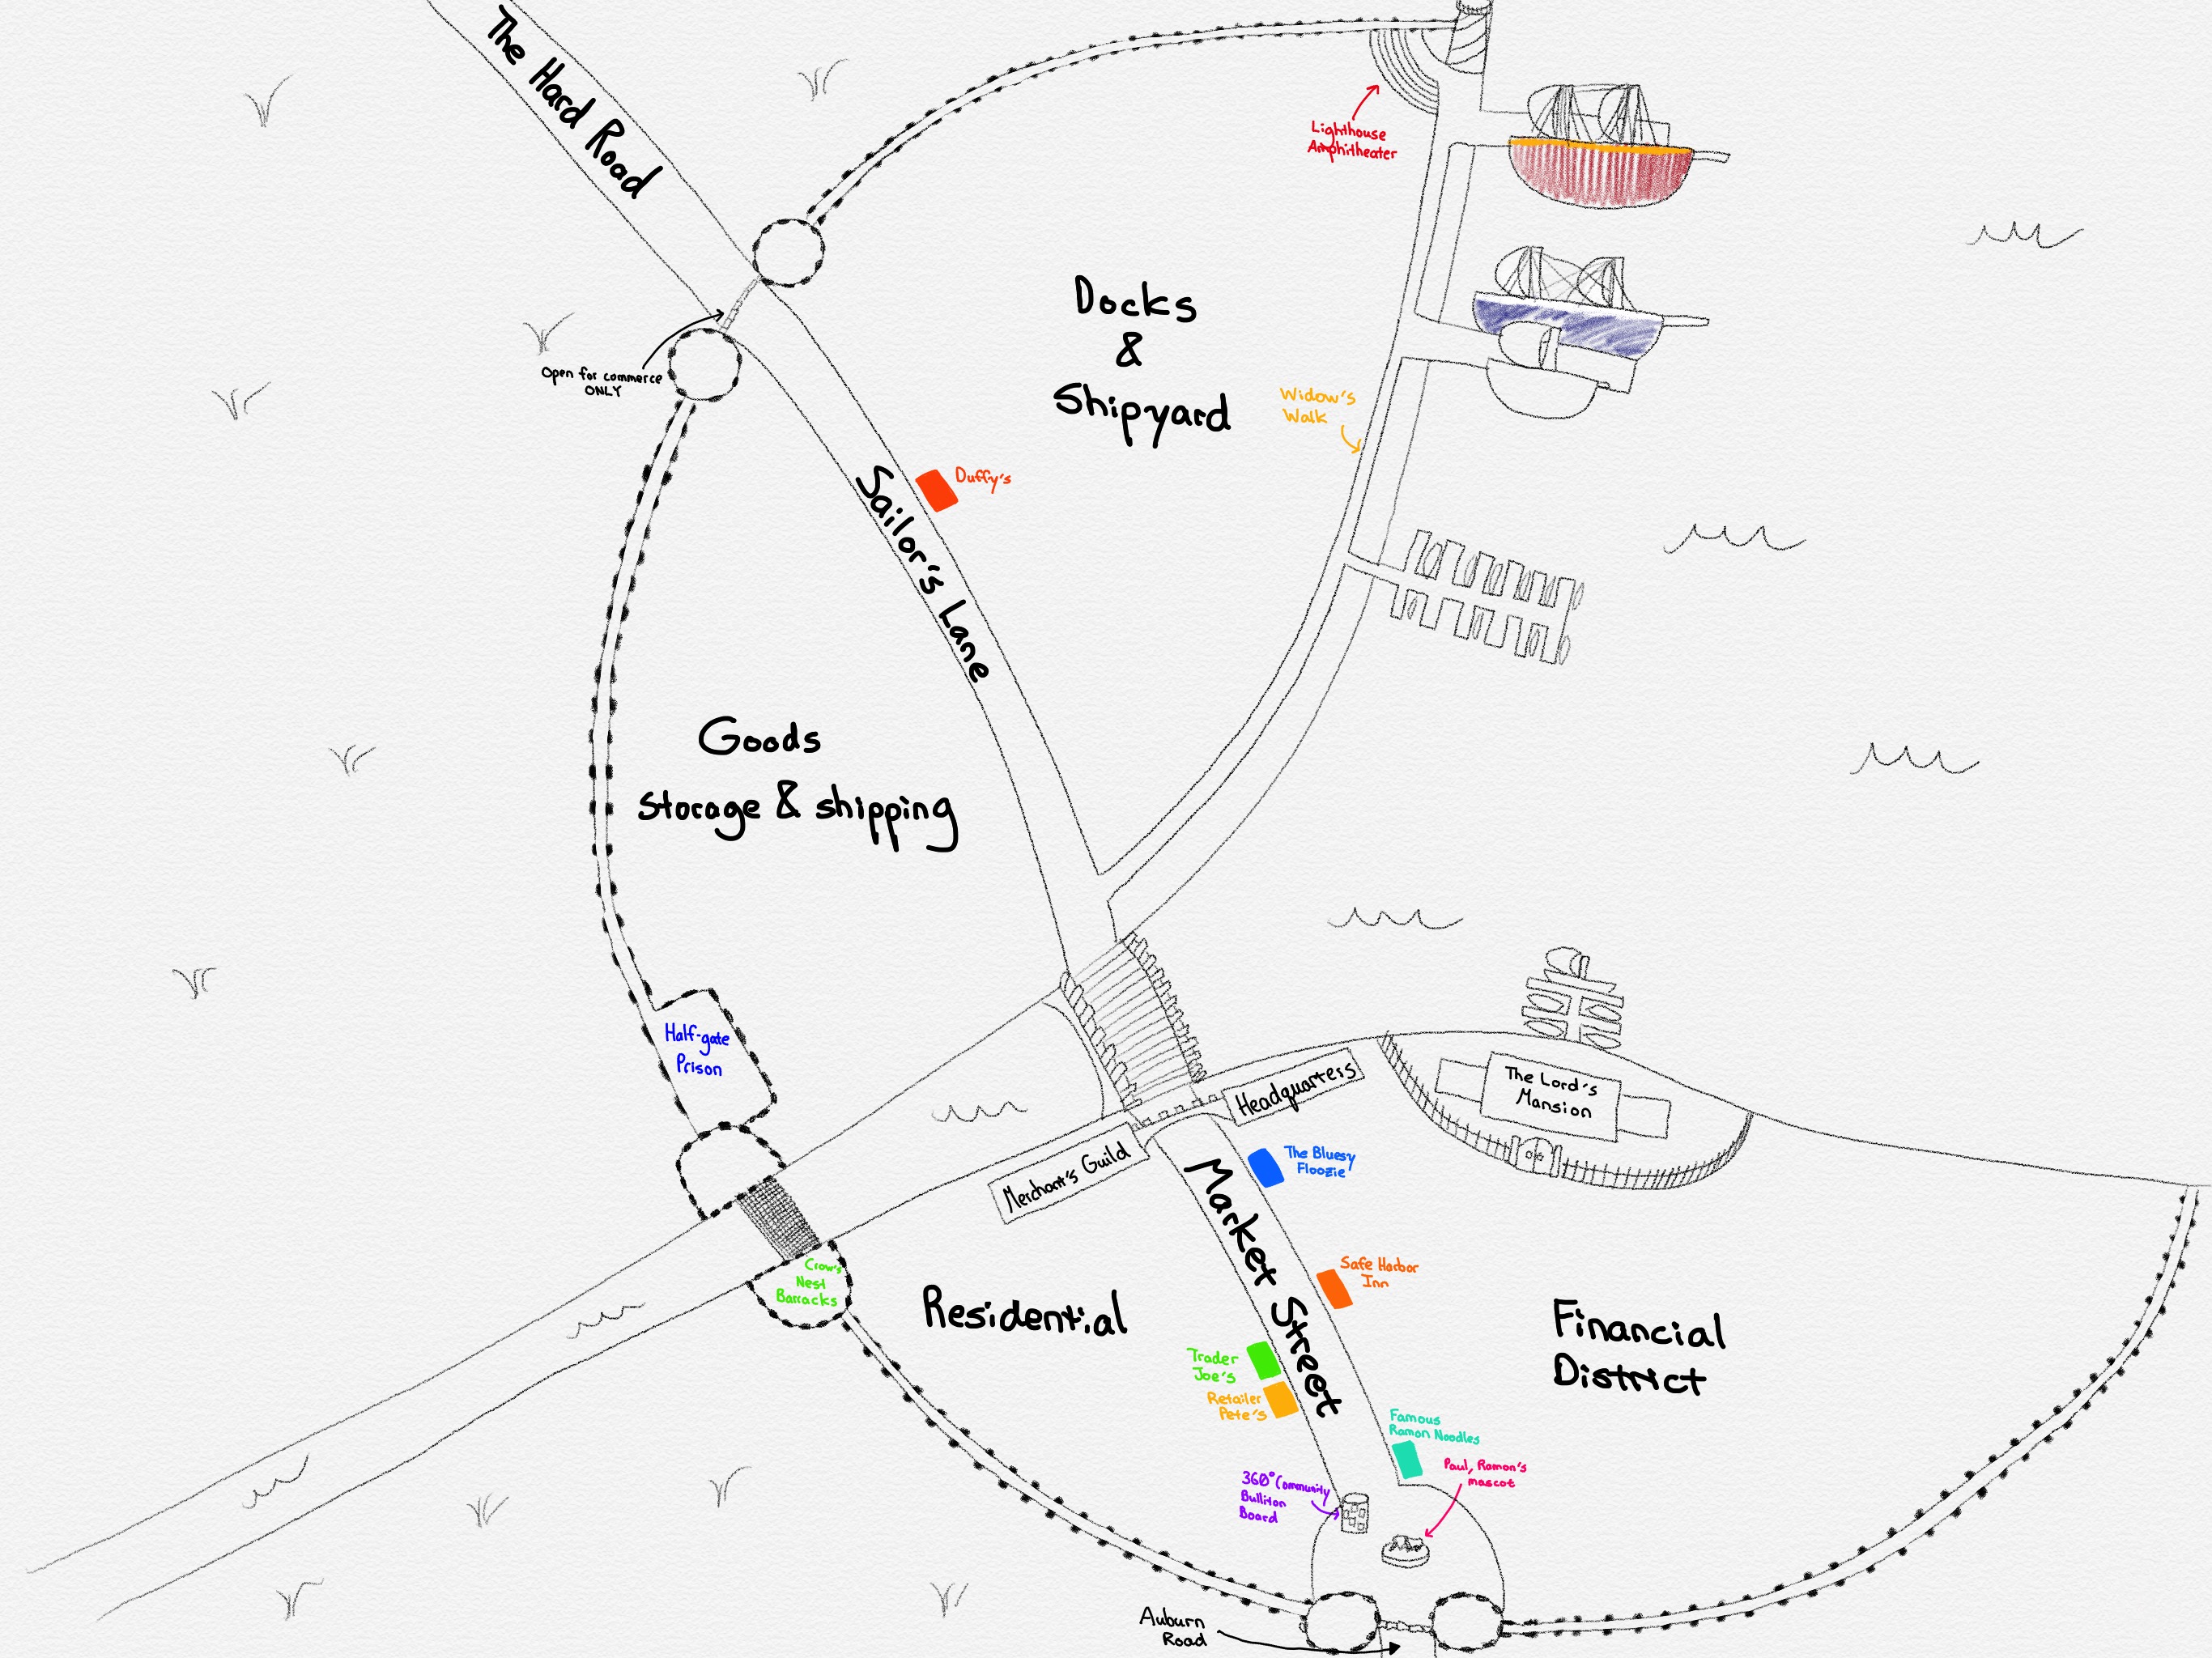 The Hard Road
Lighthouse
Amphitheater
Open for commerce
ONLY
Docks
&
Shipyard
Widow's
Walk
Duffy's
Sailor's Lane
Goods
Storage & shipping
Half-gate
Prison
Headquarters
The Lord's
Mansion
Merchant's Guild
The Bluesy
Floozie
Market Street
Crow's
Nest
Barracks
Safe Harbor
Inn
Residential
Financial
District
Trader
Joe's
Retailer
Pete's
Famous
Ramon Noodles
Paul, Ramon's
mascot
360° Community
Bulliton
Board
Auburn
Road